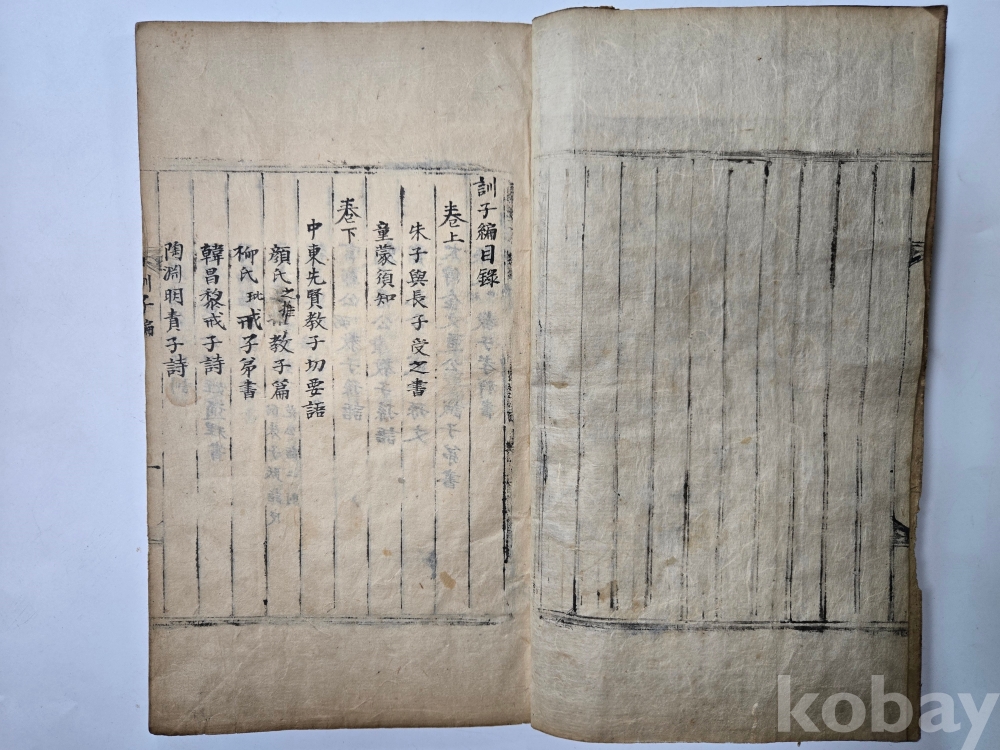 訓子編目錄
卷上
朱子與長子受之書
童蒙須知
卷下
中東先賢教子切要語
顔氏之推教子篇
柳氏玭戒子弟書
韓昌黎戒子詩
陶淵明責子詩
訓子編
一
kobay